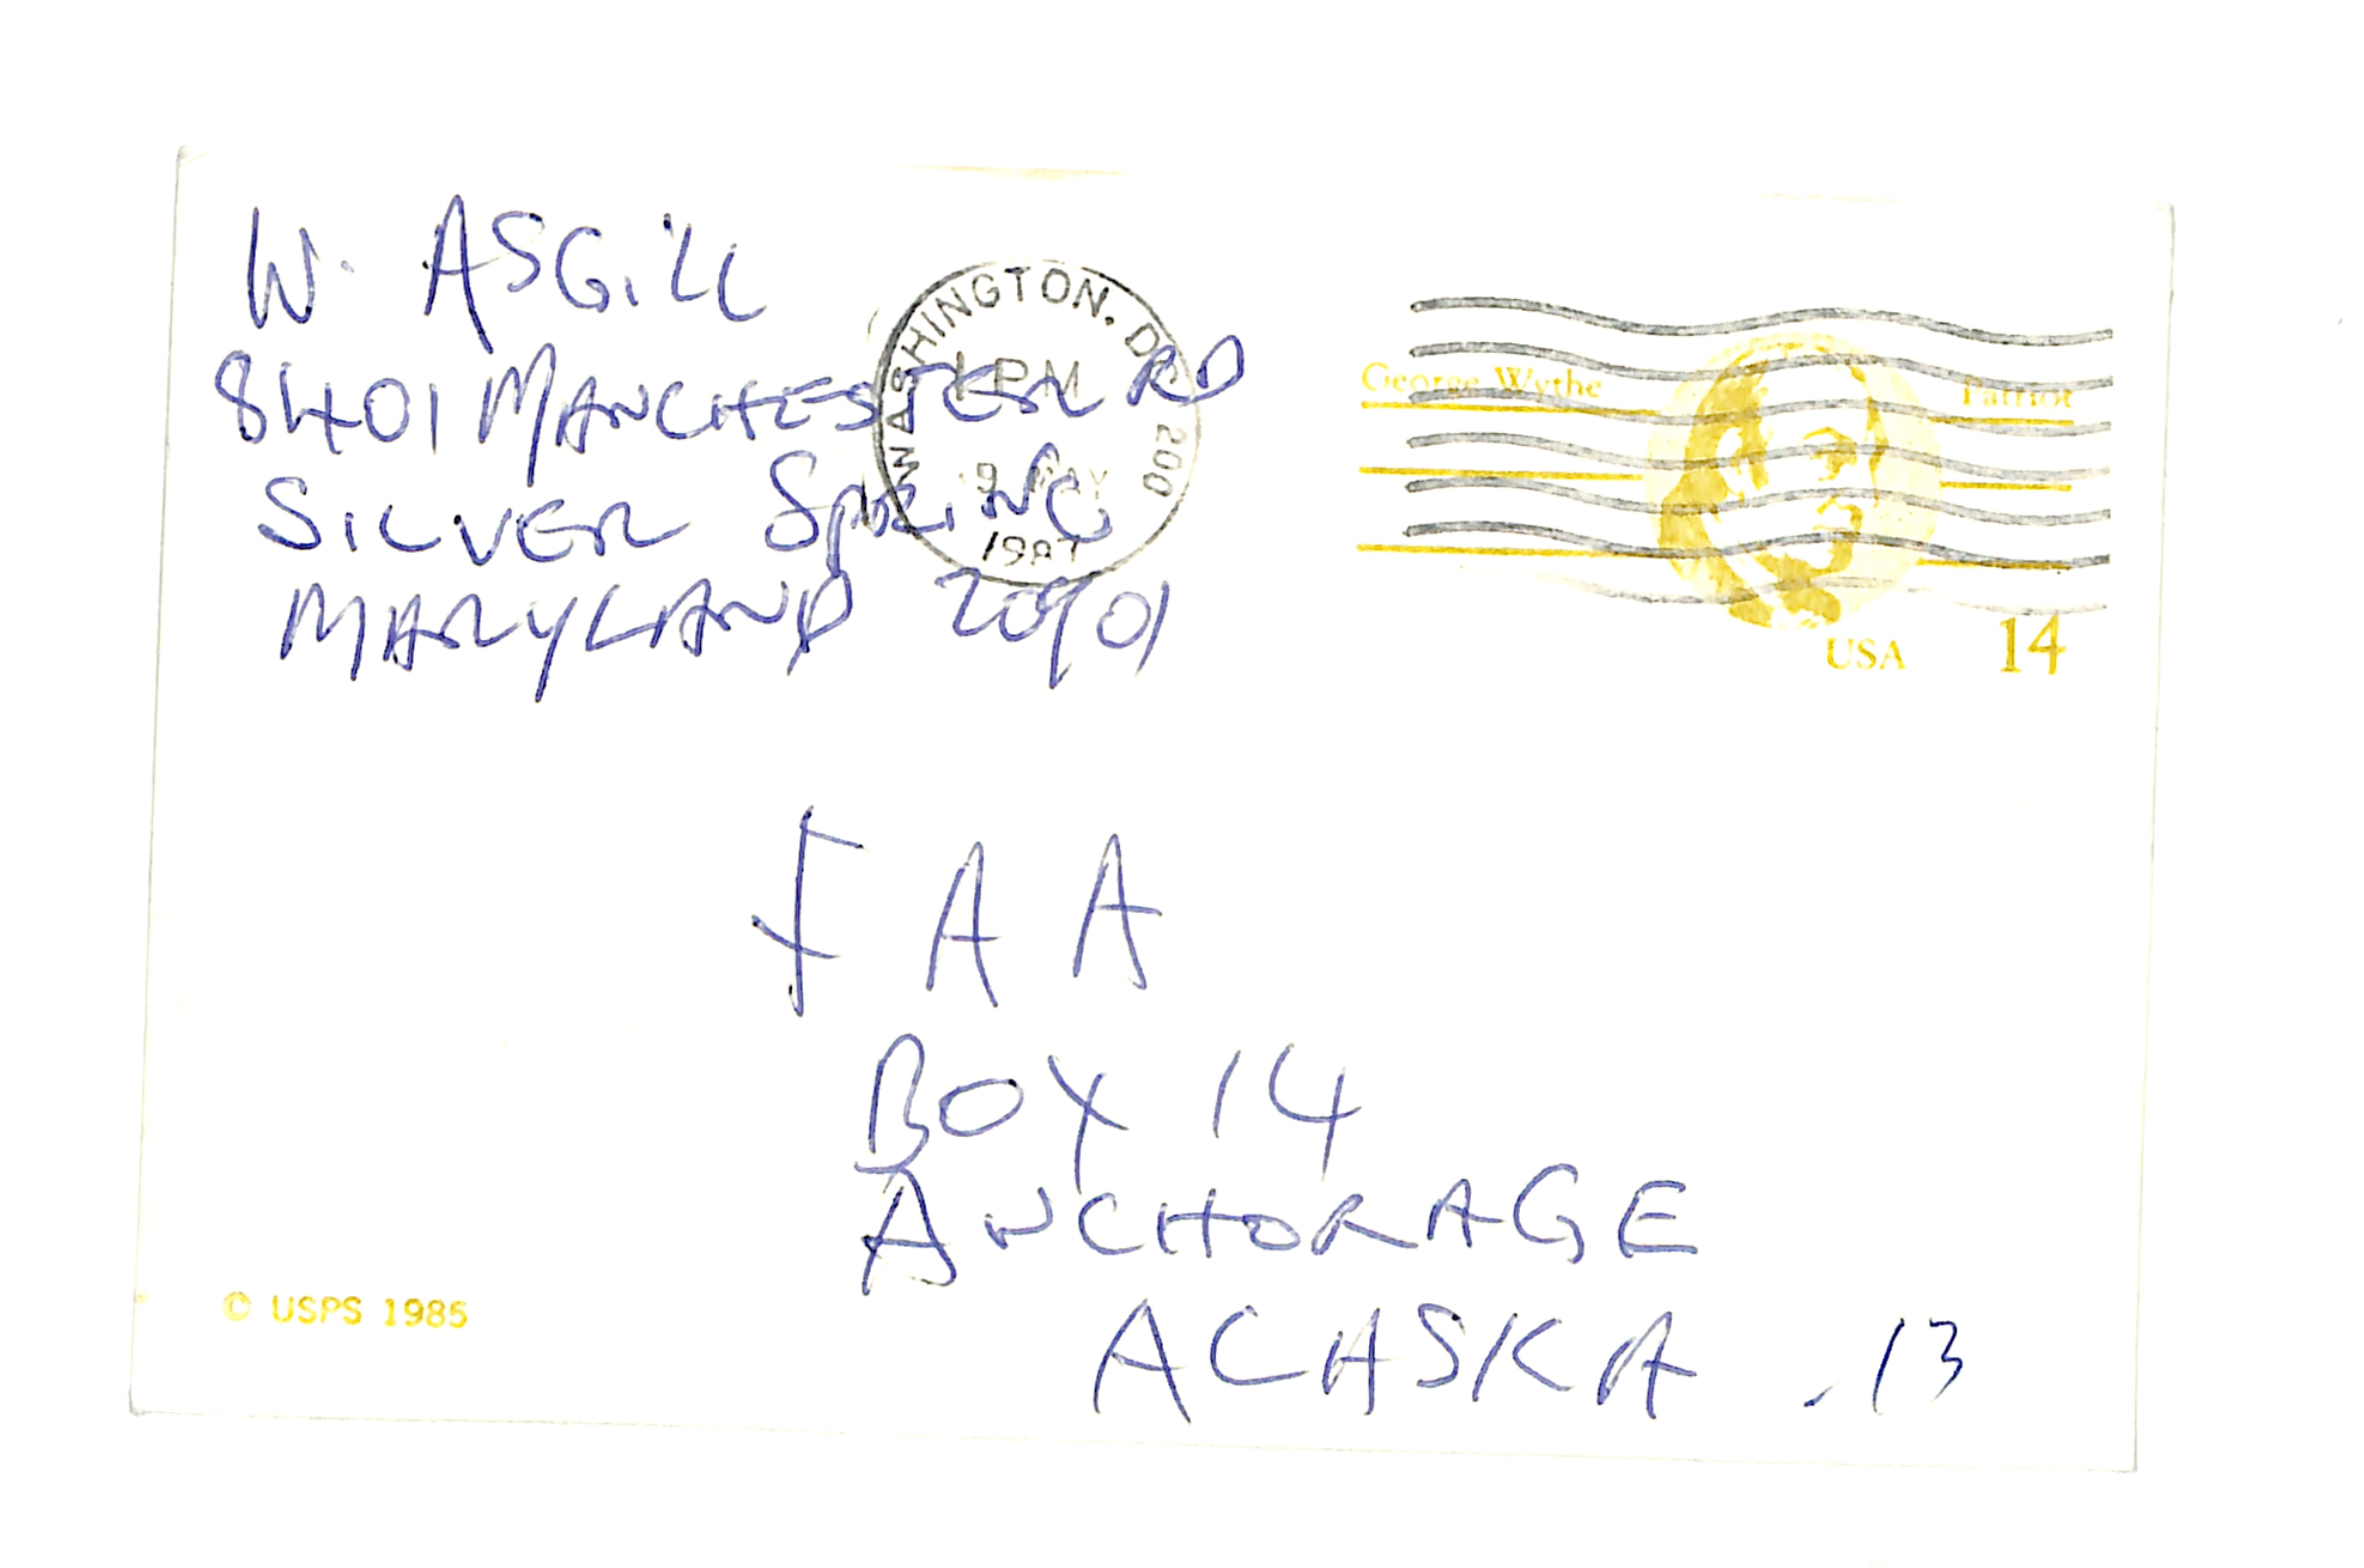 W. ASGILL
8401 MANCHESTER RD
SILVER SPRING
MARYLAND 20901
WASHINGTON. DC 200
PM
9 MAY
1987
George Wythe Patriot
USA 14
FAA
BOX 14
ANCHORAGE
ALASKA .13
© USPS 1985